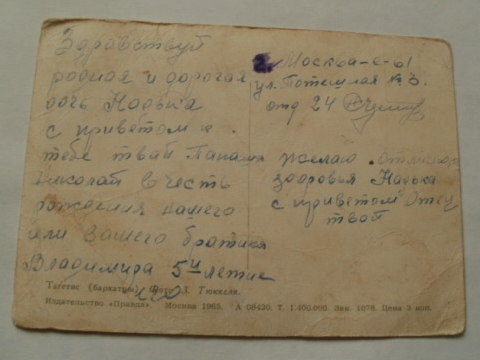 Здравствуй
родная и дорогая
дочь Надька
с приветом к
тебе твай Папаня
Николай в честь
рождения вашего
или вашего братика
Владимира 5и летие
Москва-Е-61
ул. Потешная № 3.
отд 24
желаю отлично
здоровья Надька
с приветом Отец
твой
Тагетис (бархатцы) Фото Тюккеля.
Издательство «Правда» Москва 1965. А 08420. Т. 1.400.000. Зак. 1078. Цена 3 коп.